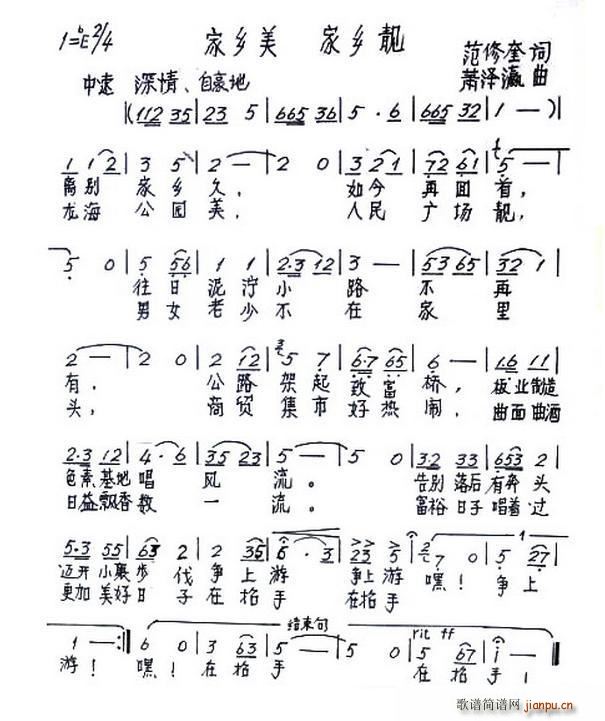 1=ᵇE 2/4 家乡美 家乡靓
范修奎 词
中速 深情、自豪地
萧泽瀛 曲
(112 35 | 23 5 | 665 36 | 5·6 | 665 32 | 1 — )
1 1 2 | 3 5 | 2 — | 2 0 | 3 2 1 | 72 61 | 5 —
离别 家乡久， 如今 再回首，
龙海 公园美， 人民 广场靓，
5 0 | 5 56 | 1 1 | 2·3 12 | 3 — | 53 65 | 32 1
往日泥泞小路不再
男女老少不在家里
2 — | 2 0 | 2 12 | 5 7 | 6·7 65 | 6 — | 16 11
有， 公路架起致富桥，板业制造
头， 商贸集市好热闹，曲面曲酒
2·3 12 | 4·6 | 35 23 | 5 — | 5 0 | 3·2 33 | 653 3
色素基地唱风流。 告别落后有奔头
日益飘香数一流。 富裕日子唱着过
5·3 55 | 63 2 | 2 35 | 6·3 | 23 5 | 7 0 | 5 27
迈开小襄步伐争上游 争上游 嘿！争上
更加美好日子在招手 在招手
结束句
rit ff
1 — :| 6 0 | 3 63 | 5 — | 5 0 | 5 67 | i —
游！ 嘿！在招手 在招手！
歌谱简谱网
jianpu.cn